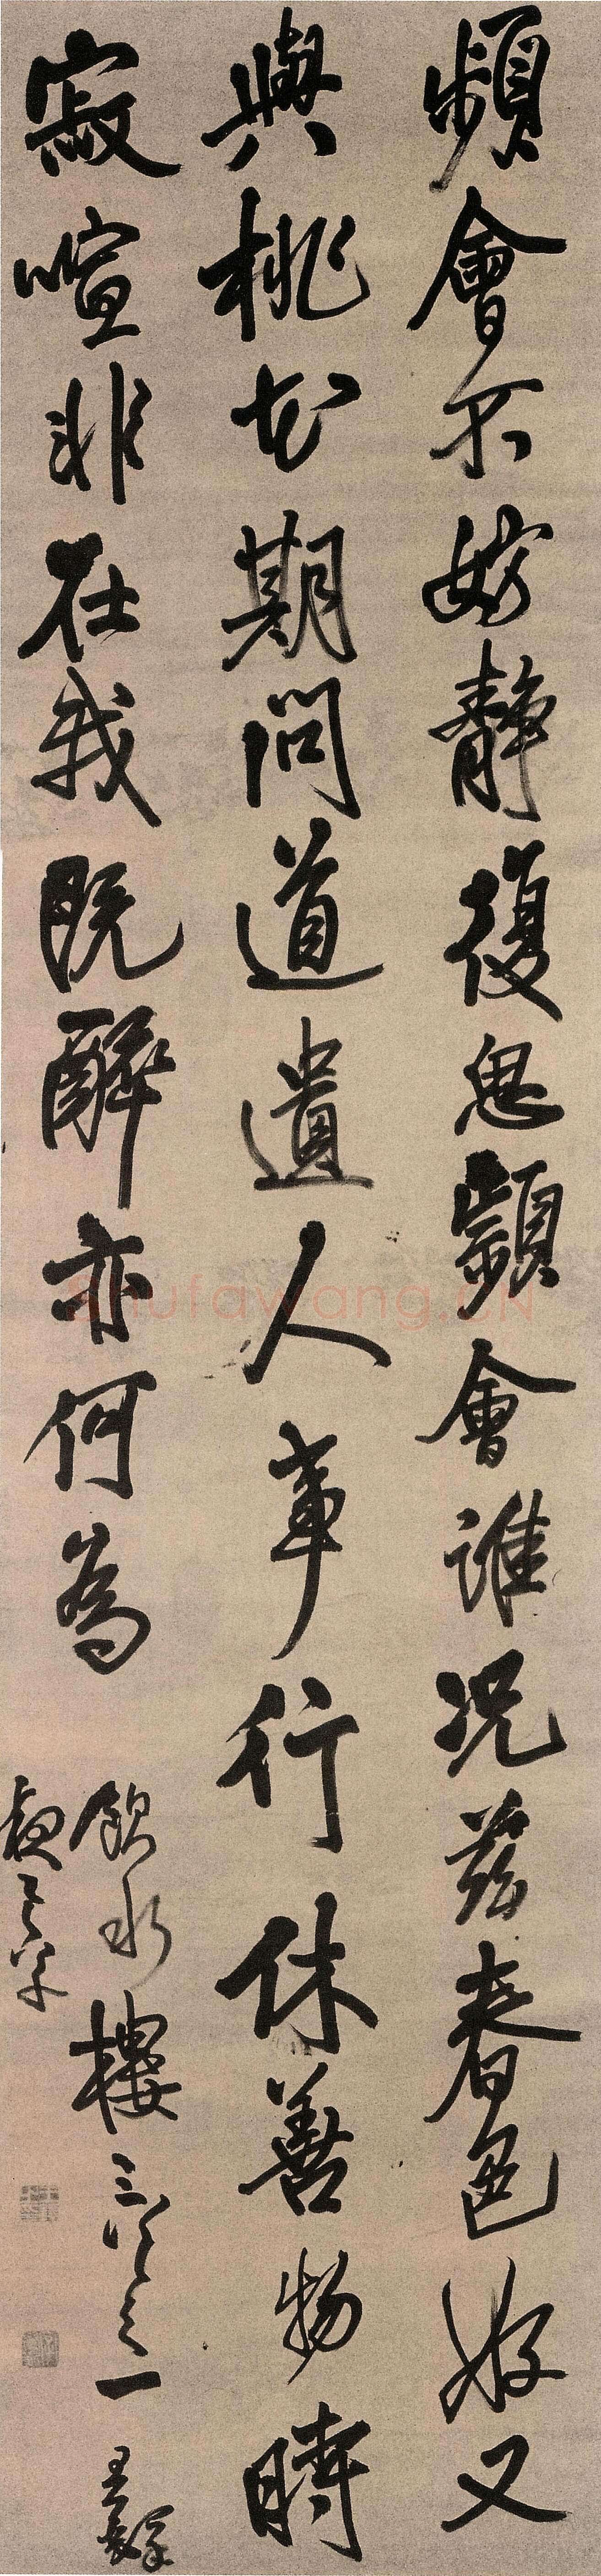 頻會不妨靜復思頻會誰况茲春色好又
與桃花期問道遺人事行休善物時
寂喧非在我既醉亦何為
飲水樓三首之一 王鐸
Shufawang.CN